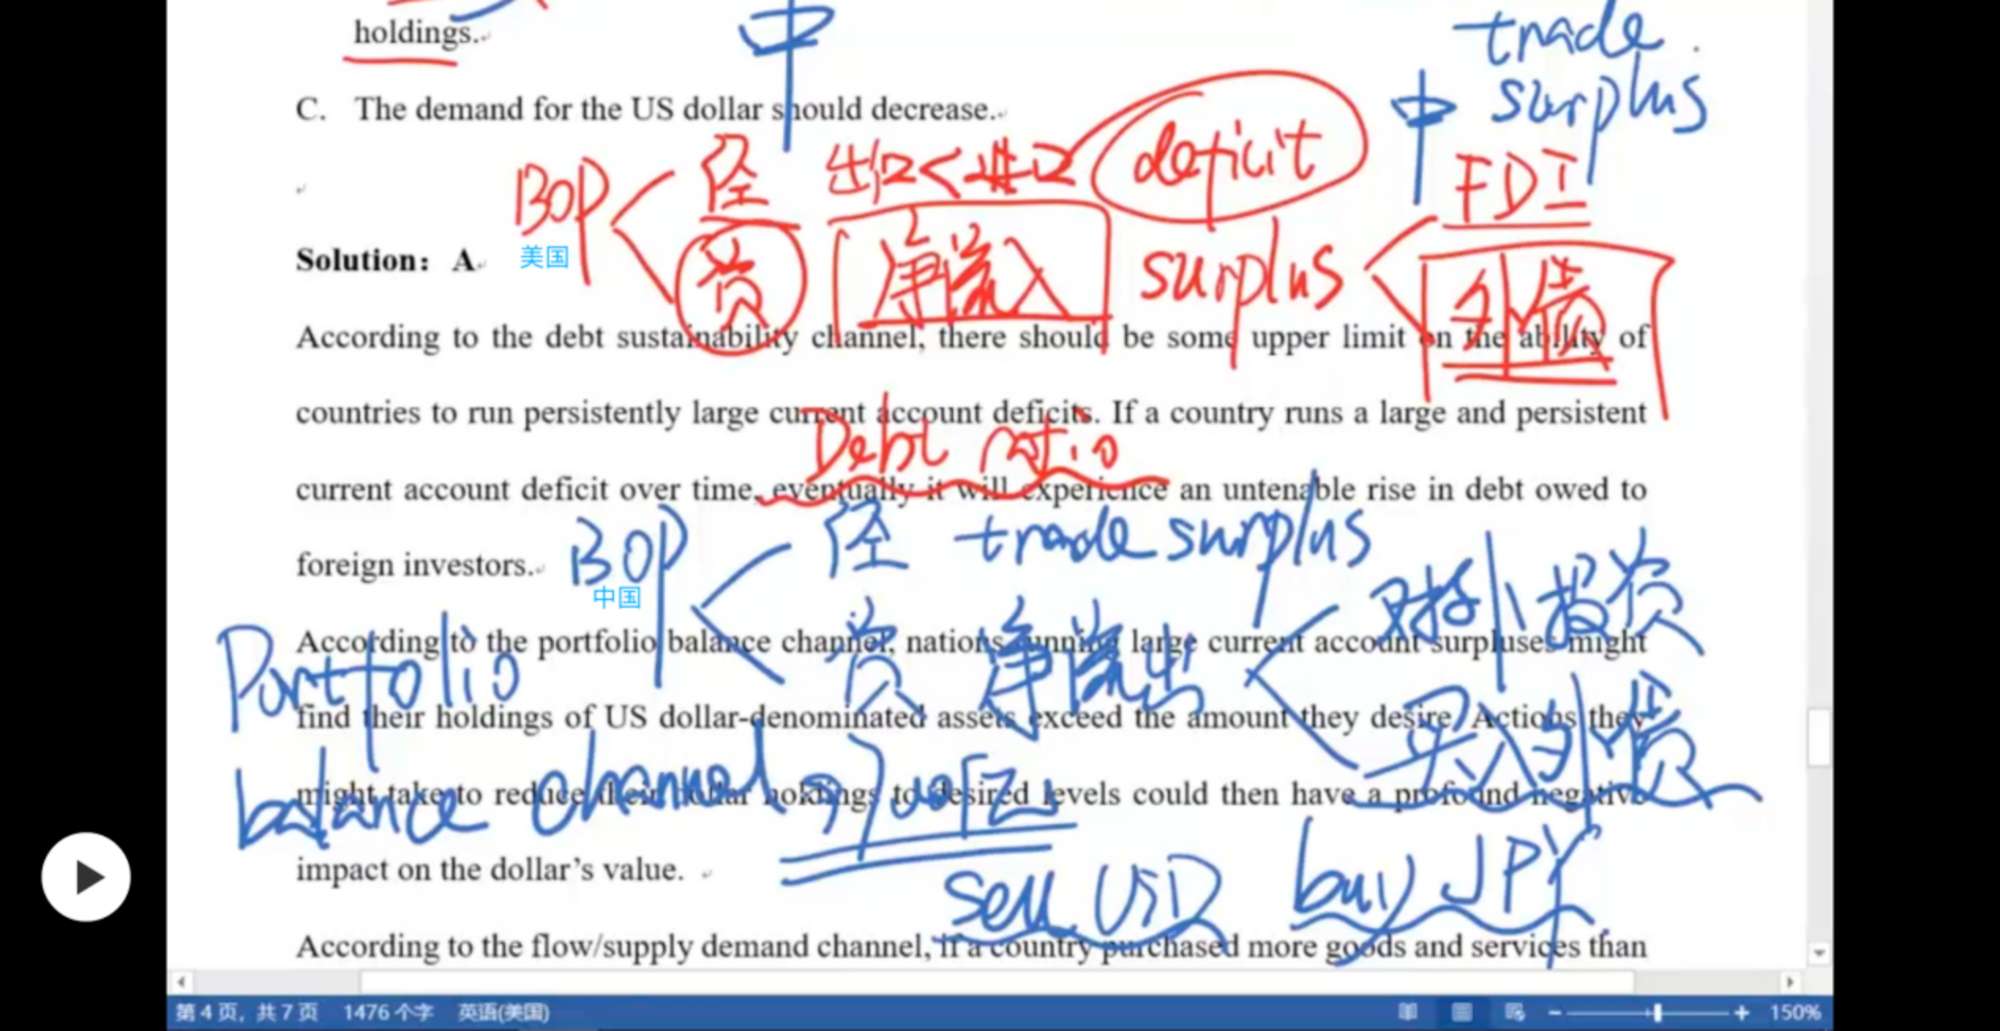 holdings.
中
trade
surplus
中
C. The demand for the US dollar should decrease.
BOP
美国
经
出口<进口
deficit
FDI
资
净流入
surplus
外债
Solution: A
According to the debt sustainability channel, there should be some upper limit on the ability of
countries to run persistently large current account deficits. If a country runs a large and persistent
Debt ratio
current account deficit over time, eventually it will experience an untenable rise in debt owed to
foreign investors.
BOP
中国
经 trade surplus
资 净流出
对外投资
买入外债
According to the portfolio balance channel, nations running large current account surpluses might
find their holdings of US dollar-denominated assets exceed the amount they desire. Actions they
might take to reduce their dollar holdings to desired levels could then have a profound negative
impact on the dollar's value.
Portfolio
balance channel
sell USD buy JPY
According to the flow/supply demand channel, if a country purchased more goods and services than
第4页，共7页 1476个字 英语(美国) 150%